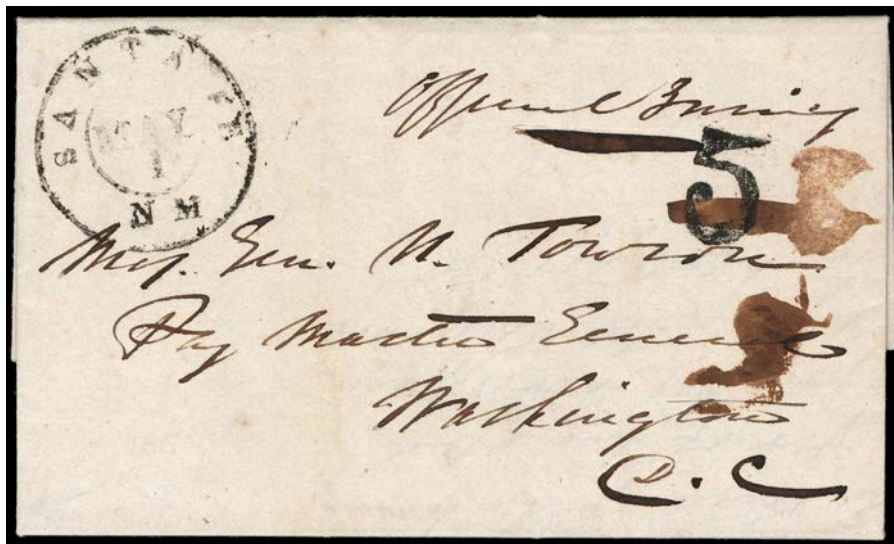 SANTA FE
MAY
1
N M
Official Business
5
Maj. Gen. N. Towson
Pay Master General
Washington
D.C